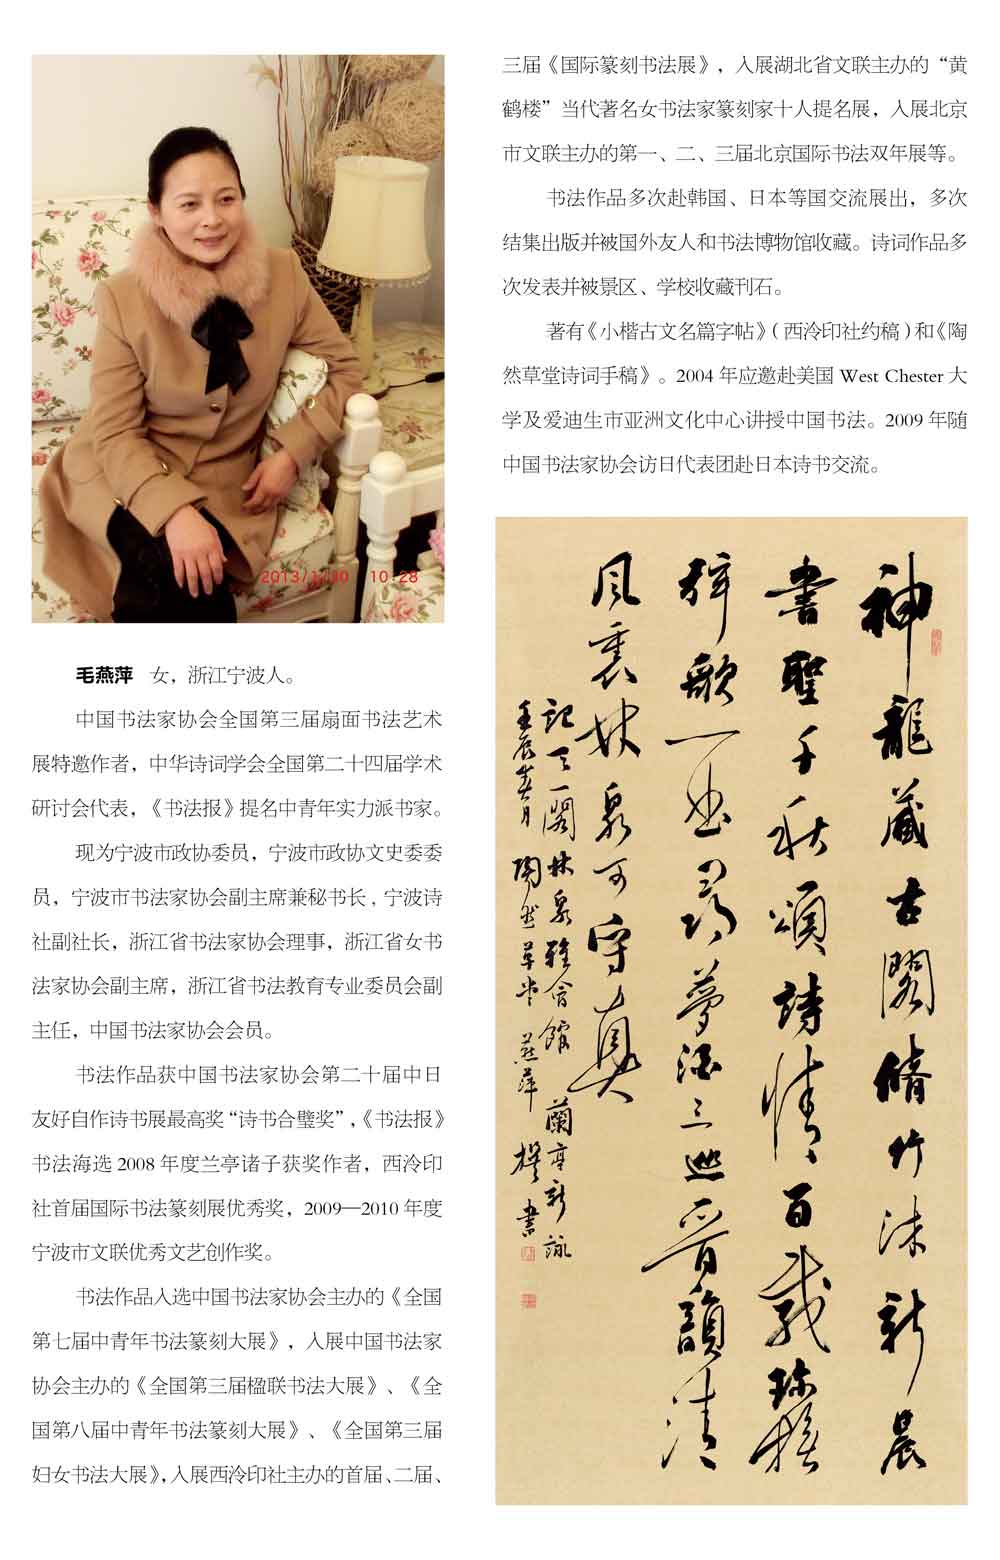 2013/1/30 10:28
毛燕萍 女，浙江宁波人。
中国书法家协会全国第三届扇面书法艺术
展特邀作者，中华诗词学会全国第二十四届学术
研讨会代表，《书法报》提名中青年实力派书家。
现为宁波市政协委员，宁波市政协文史委委
员，宁波市书法家协会副主席兼秘书长，宁波诗
社副社长，浙江省书法家协会理事，浙江省女书
法家协会副主席，浙江省书法教育专业委员会副
主任，中国书法家协会会员。
书法作品获中国书法家协会第二十届中日
友好自作诗书展最高奖“诗书合璧奖”，《书法报》
书法海选 2008 年度兰亭诸子获奖作者，西泠印
社首届国际书法篆刻展优秀奖，2009—2010 年度
宁波市文联优秀文艺创作奖。
书法作品入选中国书法家协会主办的《全国
第七届中青年书法篆刻大展》，入展中国书法家
协会主办的《全国第三届楹联书法大展》、《全
国第八届中青年书法篆刻大展》、《全国第三届
妇女书法大展》，入展西泠印社主办的首届、二届、
三届《国际篆刻书法展》，入展湖北省文联主办的“黄
鹤楼”当代著名女书法家篆刻家十人提名展，入展北京
市文联主办的第一、二、三届北京国际书法双年展等。
书法作品多次赴韩国、日本等国交流展出，多次
结集出版并被国外友人和书法博物馆收藏。诗词作品多
次发表并被景区、学校收藏刊石。
著有《小楷古文名篇字帖》（西泠印社约稿）和《陶
然草堂诗词手稿》。2004 年应邀赴美国 West Chester 大
学及爱迪生市亚洲文化中心讲授中国书法。2009 年随
中国书法家协会访日代表团赴日本诗书交流。
神龍藏古閣脩竹沐新晨
書聖千秋頌詩情百載珍
歌一曲尋夢酒三巡晉韻清
風裏林泉可守真
記天一閣林泉雅會館 蘭亭新詠
壬辰春月 陶然草堂 燕萍 撰書